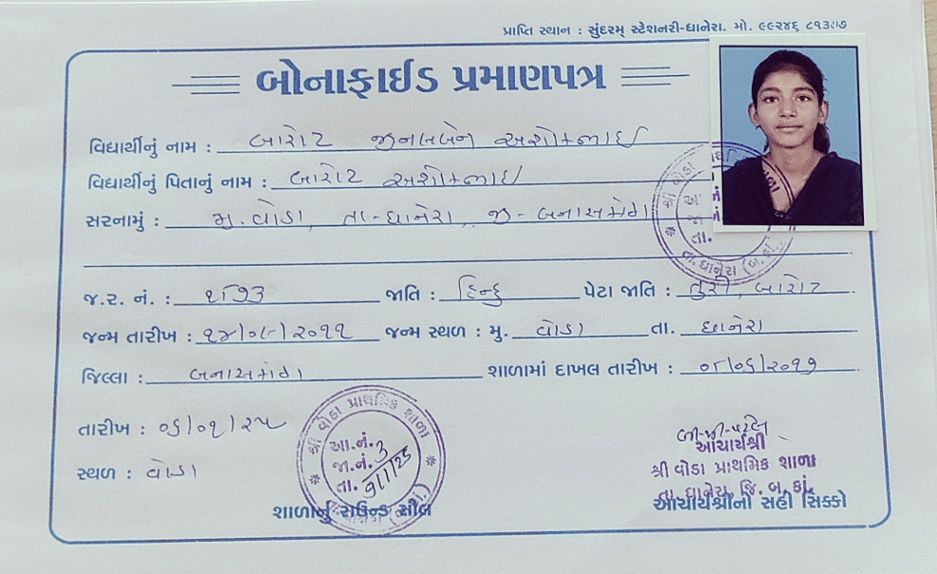 પ્રાપ્તિ સ્થાન : સુંદરમ્ સ્ટેશનરી-ધાનેરા. મો. ૯૯૨૪૬
બોનાફાઈડ પ્રમાણપત્ર
વિદ્યાર્થીનું નામ : બારોટ જીનલબેન અશોકભાઈ
વિદ્યાર્થીનું પિતાનું નામ : બારોટ અશોકભાઈ
સરનામું : મુ. વોડા, તા-ધાનેરા, જી-બનાસકાંઠા
જ.ર. નં. : જાતિ : હિન્દુ પેટા જાતિ : તુરી, બારોટ
જન્મ તારીખ : જન્મ સ્થળ : મુ. વોડા તા. ધાનેરા
જિલ્લા : બનાસકાંઠા શાળામાં દાખલ તારીખ :
તારીખ :
સ્થળ : વોડા
શ્રી વોડા પ્રાથમિક શાળા
આ.નં. 3
જા.નં.
તા. 9/1/25
શાળાનું રાઉન્ડ સીલ
આચાર્યશ્રી
શ્રી વોડા પ્રાથમિક શાળા
તા. ધાનેરા, જિ. બ. કાં.
આચાર્યશ્રીનો સહી સિક્કો